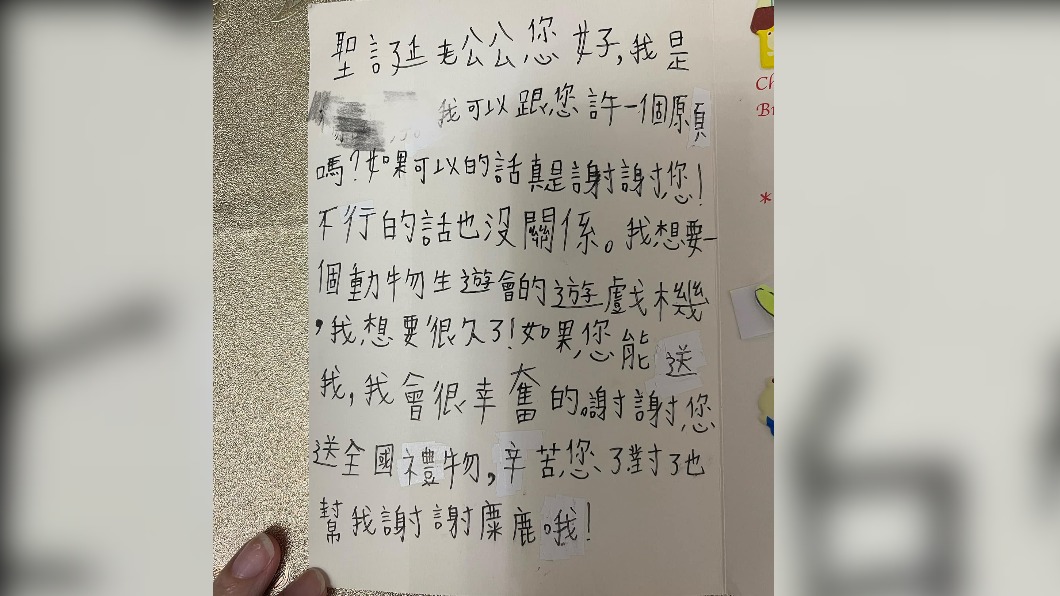 聖誕老公公您好,我是
我可以跟您許一個願
嗎?如果可以的話真是謝謝您!
不行的話也没關係。我想要一
個動物生遊會的遊戲機
,我想要很久了!如果您能送
我,我會很幸奮的。謝謝您
送全國禮物,辛苦您了對了也
幫我謝謝麋鹿哦!